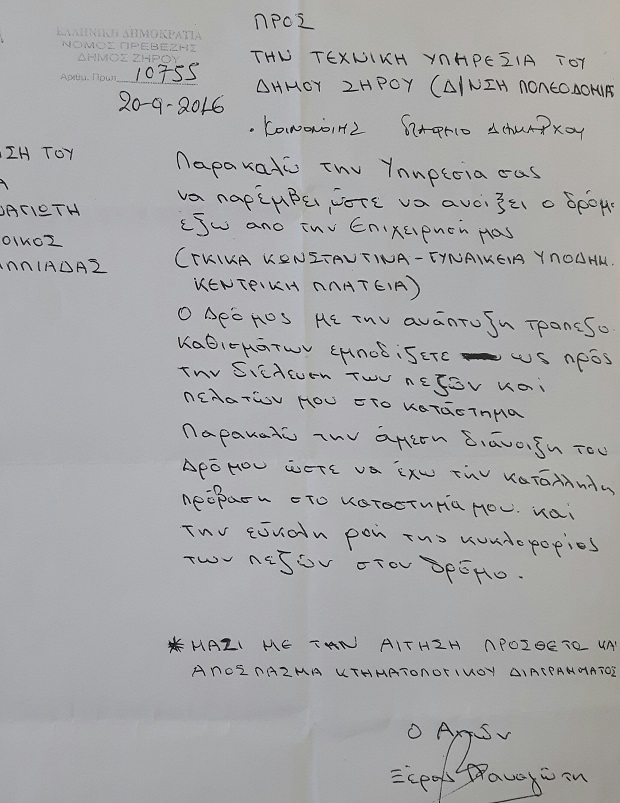 ΕΛΛΗΝΙΚΗ ΔΗΜΟΚΡΑΤΙΑ
ΝΟΜΟΣ ΠΡΕΒΕΖΗΣ
ΔΗΜΟΣ ΖΗΡΟΥ
Αριθμ. Πρωτ. 10755
20-9-2016
ΠΡΟΣ
ΤΗΝ ΤΕΧΝΙΚΗ ΥΠΗΡΕΣΙΑ ΤΟΥ
ΔΗΜΟΥ ΖΗΡΟΥ (Δ/ΝΣΗ ΠΟΛΕΟΔΟΜΙΑ
. ΚΟΙΝΟΠΟΙΗΣ ΓΡΑΦΕΙΟ ΔΗΜΑΡΧΟΥ
ΣΗ ΤΟΥ
Α
ΑΓΙΩΤΗ
ΟΙΚΟΣ
ΙΠΠΙΑΔΑΣ
Παρακαλώ την Υπηρεσία σας
να παρέμβει, ώστε να ανοίξει ο δρόμ
έξω απο την Επιχειρησή μας
(ΓΚΙΚΑ ΚΩΝΣΤΑΝΤΙΝΑ - ΓΥΝΑΙΚΕΙΑ ΥΠΟΔΗΜ.
ΚΕΝΤΡΙΚΗ ΠΛΑΤΕΙΑ)
Ο Δρόμος με την ανάπτυξη τραπεζο
καθισμάτων εμποδίζετε ως πρός
την διέλευση των πεζών και
πελατών μου στο κατάστημα
Παρακαλώ την άμεση διάνοιξη του
Δρόμου ώστε να έχω την κατάλληλη
πρόβαση στο καταστημά μου. και
την εύκολη ροή της κυκλοφορίας
των πεζών στον δρόμο.
* ΜΑΖΙ ΜΕ ΤΗΝ ΑΙΤΗΣΗ ΠΡΟΣΘΕΤΩ ΚΑΙ
ΑΠΟΣΠΑΣΜΑ ΚΤΗΜΑΤΟΛΟΓΙΚΟΥ ΔΙΑΓΡΑΜΜΑΤΟΣ
Ο Αιτών
Παναγιώτη